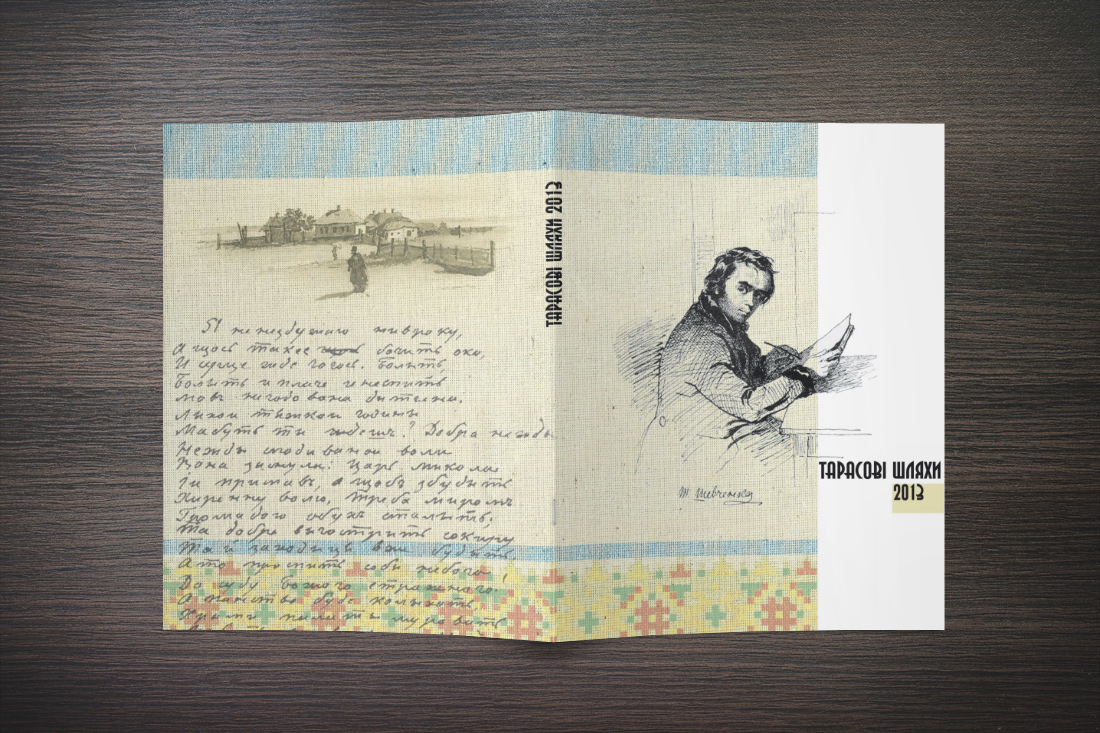 Я не нездужаю нивроку,
А щось такее бачить око,
И серце жде чогось. болить
болить и плаче и неспить
мовъ негодована дитина.
Лихои тяжкои години
Мабуть ти ждешъ? Добра нежды
Нежды сподиванои воли
Вона заснула: Царь Микола
Ии приспавъ, а щобъ збудыть
Хиренну волю, треба миромъ
Громадою обухъ сталыть,
Та добре выгострить сокиру
Та й заходицьця вже будыть.
А то проспить соби небога,
До суду божого страшного.
А панство буде колыхать
Храми палати муровать
ТАРАСОВІ ШЛЯХИ 2013
Т. Шевченко
ТАРАСОВІ ШЛЯХИ
2013